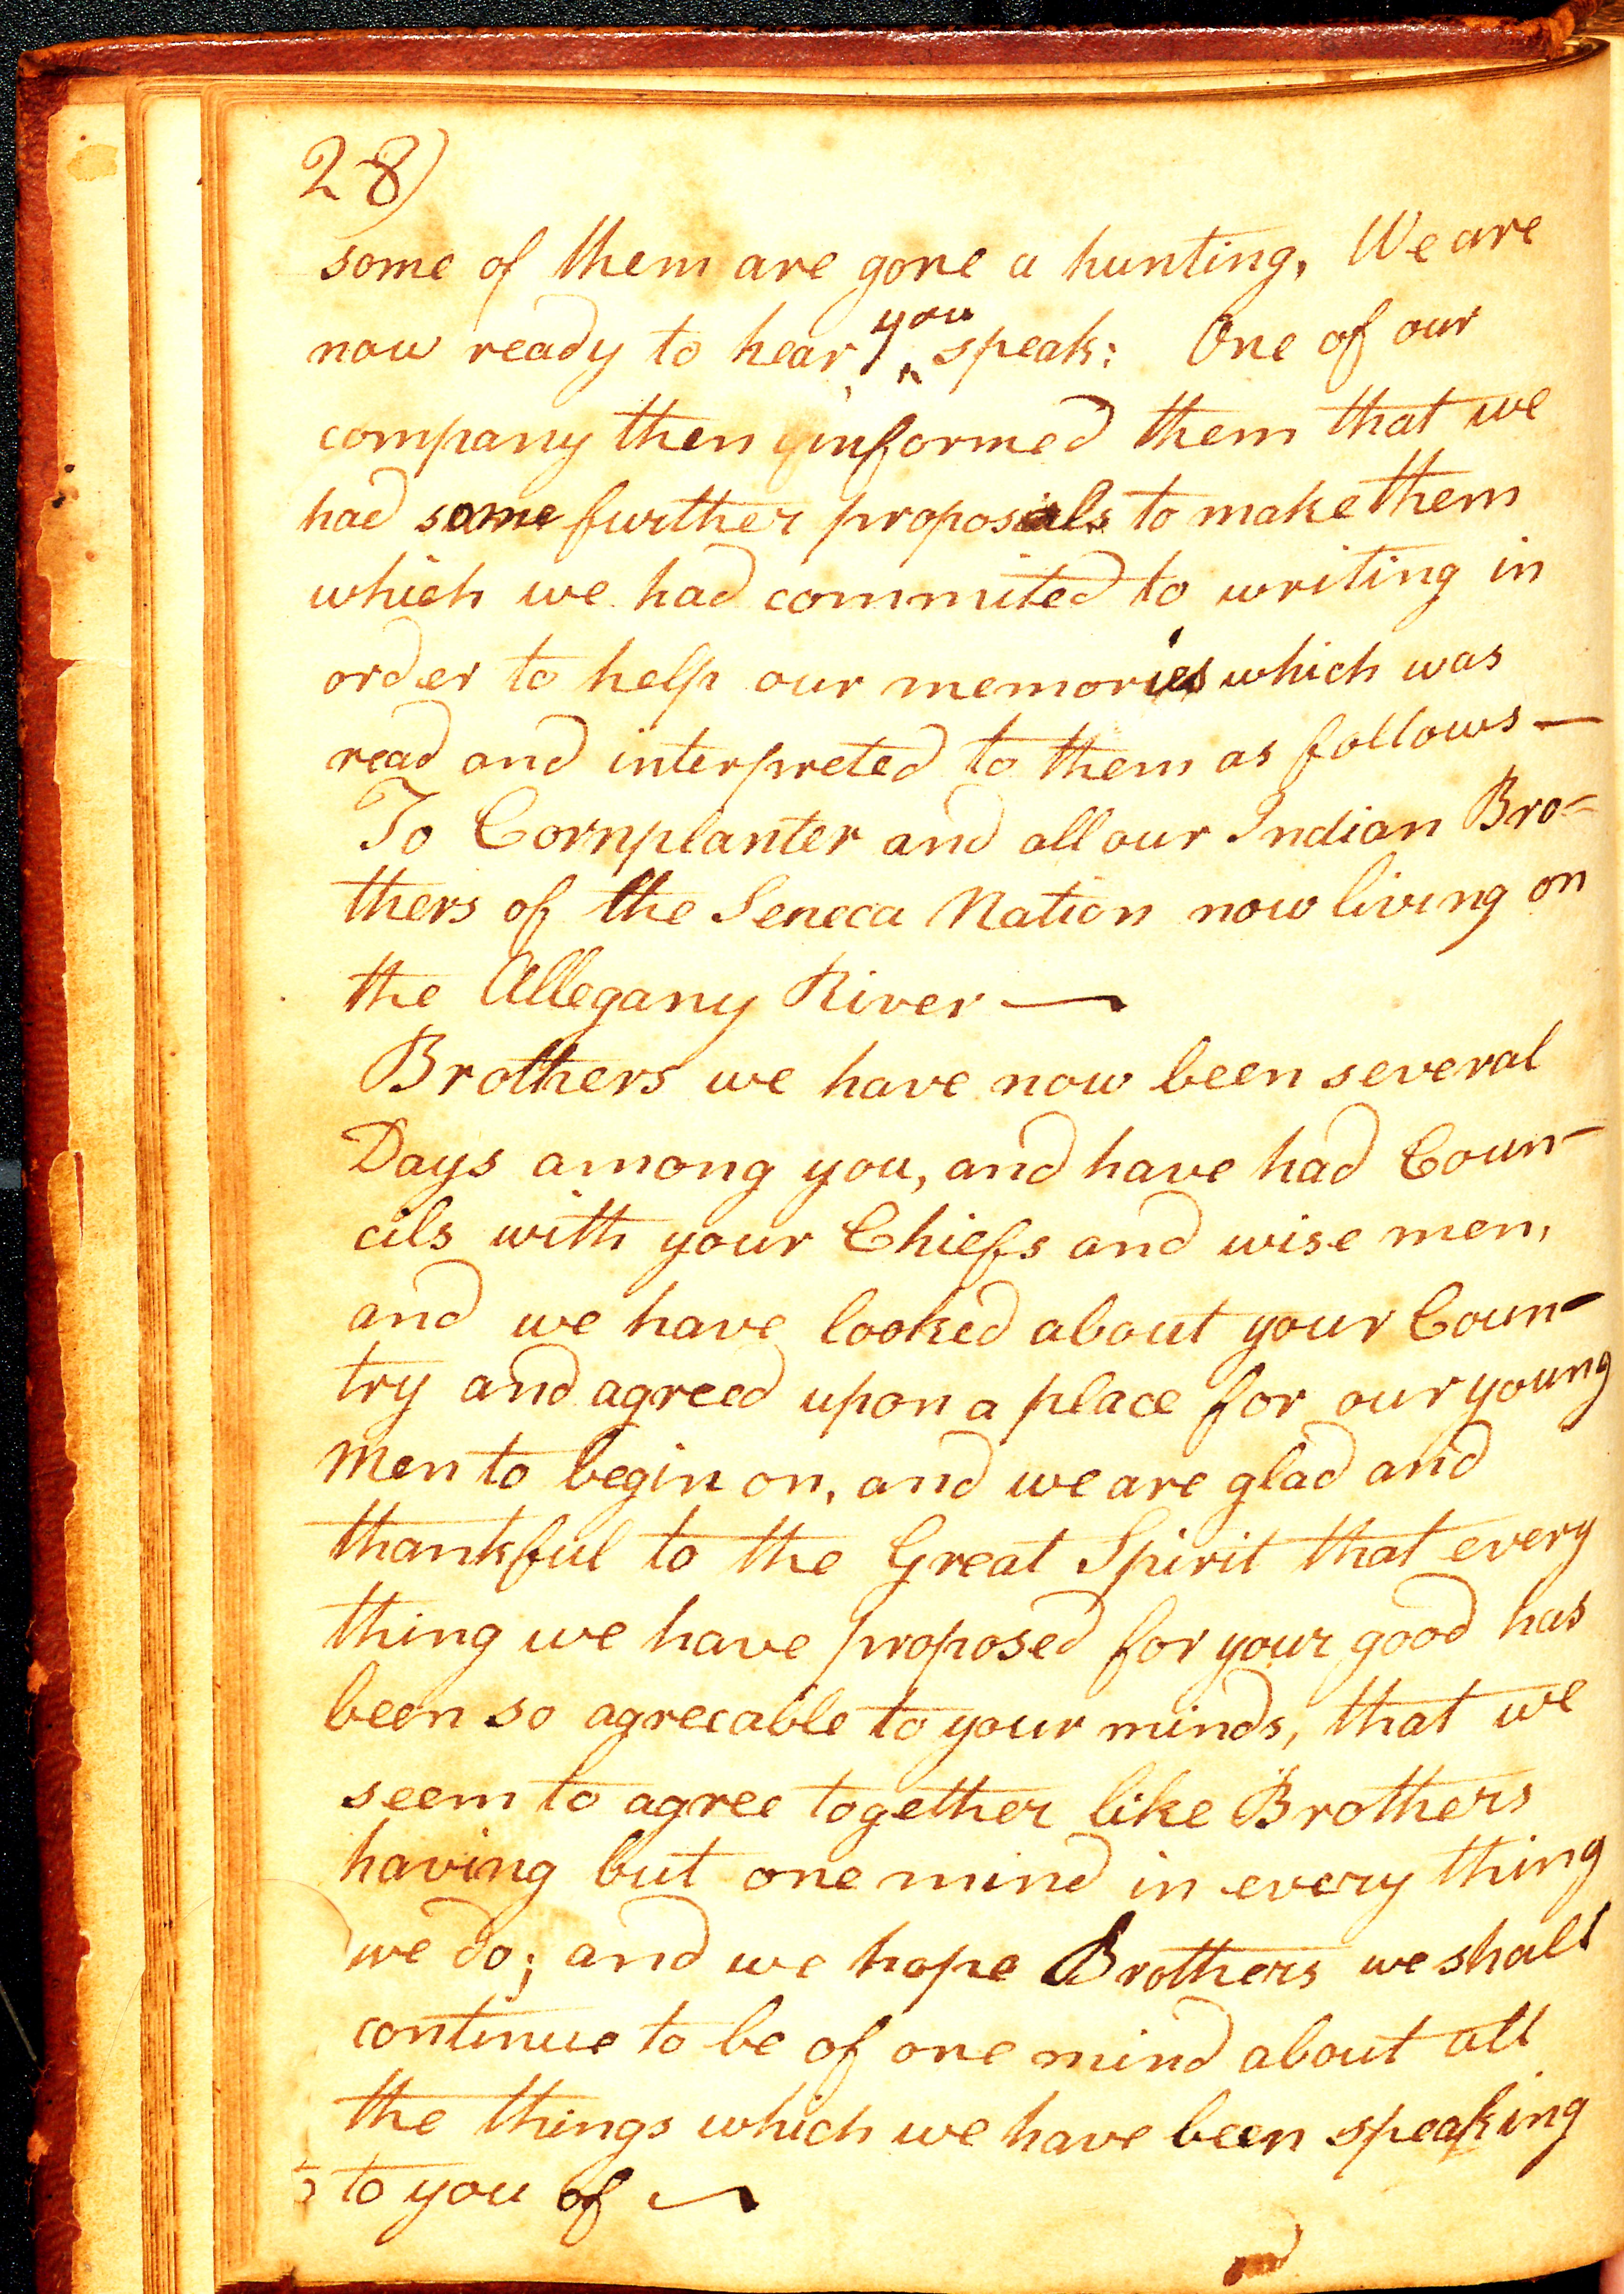 28)
some of them are gone a hunting, We are
now ready to hear you speak: One of our
company then informed them that we
had some further proposals to make them
which we had commited to writing in
order to help our memories which was
read and interpreted to them as follows —
To Cornplanter and all our Indian Bro-
thers of the Seneca Nation now living on
the Allegany River —
Brothers we have now been several
Days among you, and have had Coun-
cils with your Chiefs and wise men,
and we have looked about your Coun-
try and agreed upon a place for our young
Men to begin on, and we are glad and
thankful to the Great Spirit that every
thing we have proposed for your good has
been so agreeable to your minds, that we
seem to agree together like Brothers
having but one mind in every thing
we do; and we hope Brothers we shall
continue to be of one mind about all
the things which we have been speaking
to you of —